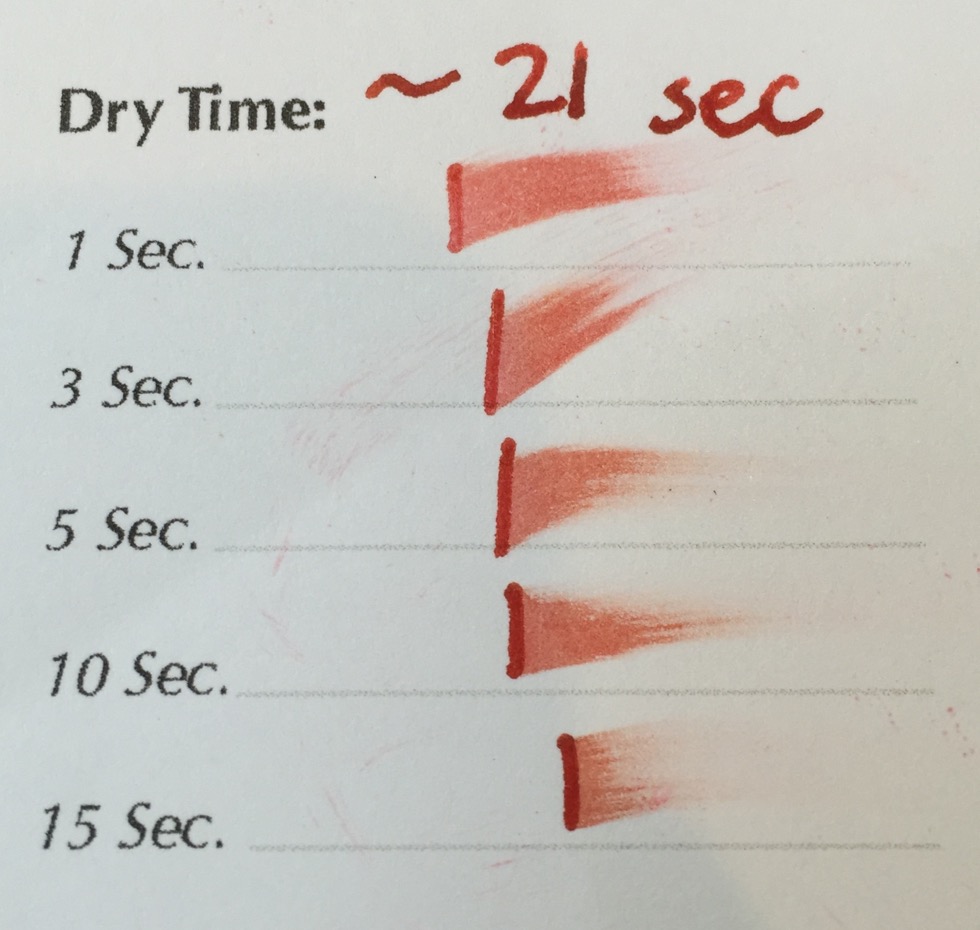 Dry Time: ~ 21 sec
1 Sec.
3 Sec.
5 Sec.
10 Sec.
15 Sec.